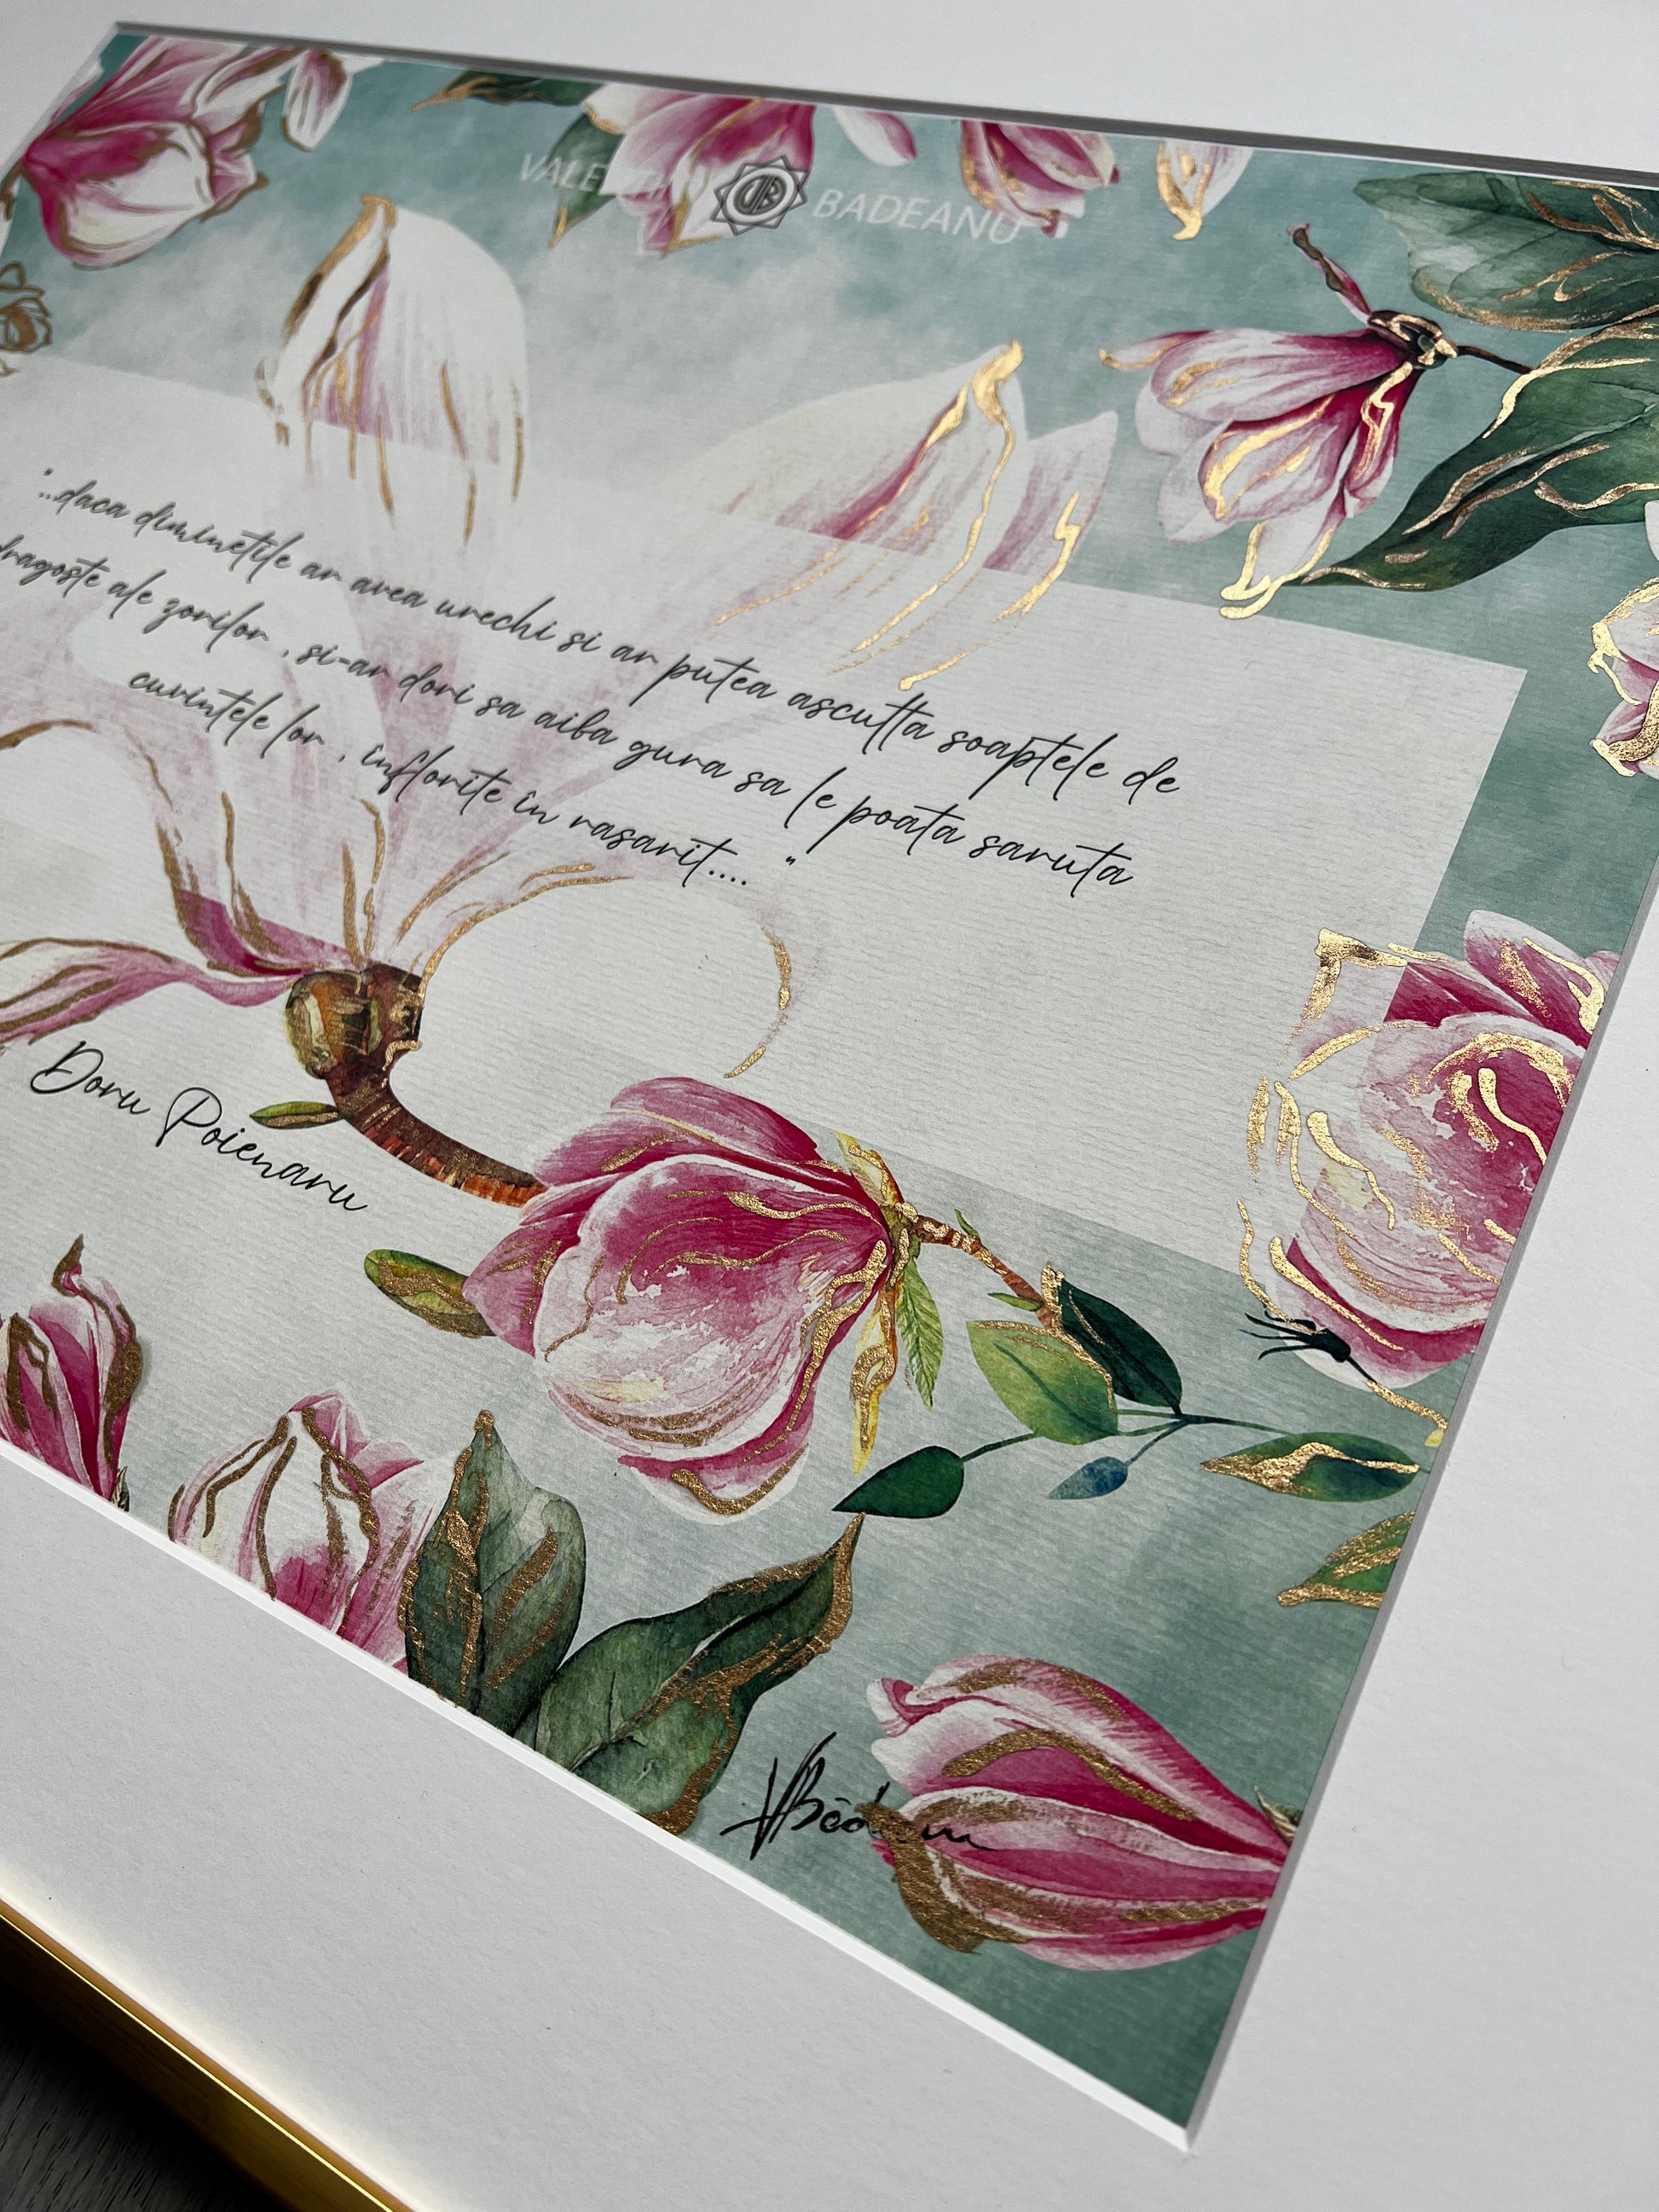 BADEANU
"...daca diminețile ar avea urechi si ar putea asculta soaptele de
dragoste ale zorilor, si-ar dori sa aiba gura sa le poata saruta
cuvintele lor, înflorite în rasarit.... "
Doru Poienaru